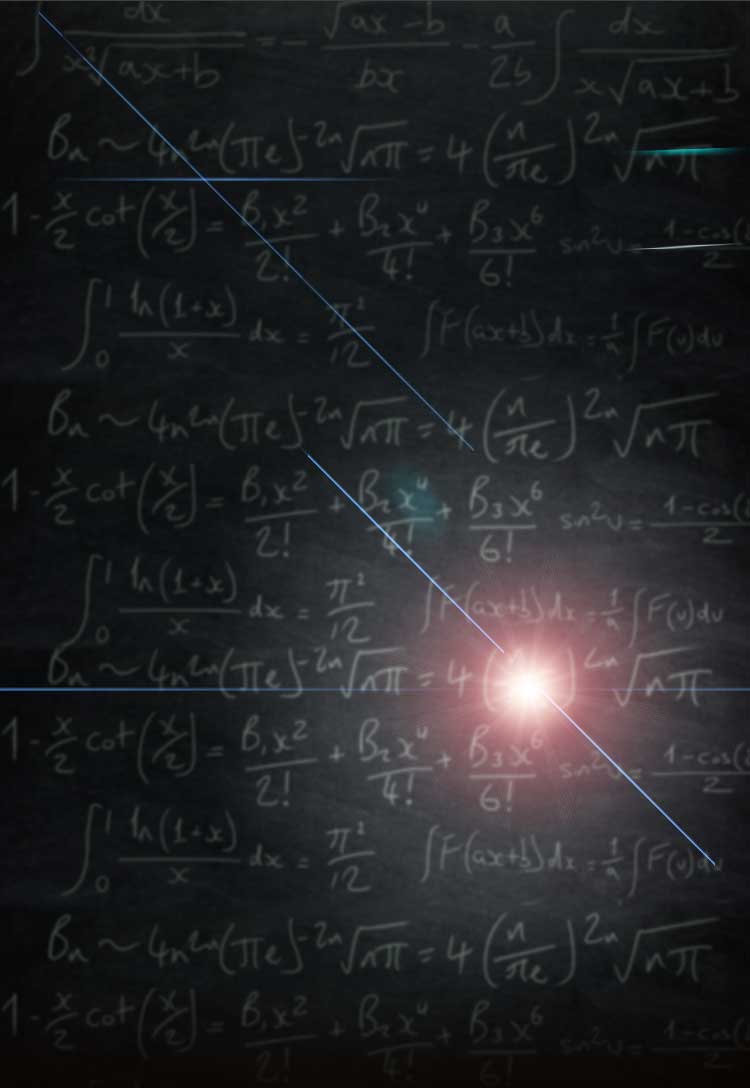 ∫ dx / x²√(ax+b) = - √(ax-b) / bx - a/2b ∫ dx / x√(ax+b)
Bn ~ 4n²ⁿ(πe)⁻²ⁿ√nπ = 4 (n/πe)²ⁿ √nπ
1 - x/2 cot(x/2) = B₁x²/2! + B₂x⁴/4! + B₃x⁶/6! sin²u = 1-cos(2
∫₀¹ ln(1+x)/x dx = π²/12 ∫F(ax+b)dx = 1/a ∫F(u)du
Bn ~ 4n²ⁿ(πe)⁻²ⁿ√nπ = 4 (n/πe)²ⁿ √nπ
1 - x/2 cot(x/2) = B₁x²/2! + B₂x⁴/4! + B₃x⁶/6! sin²u = 1-cos(2
∫₀¹ ln(1+x)/x dx = π²/12 ∫F(ax+b)dx = 1/a ∫F(u)du
Bn ~ 4n²ⁿ(πe)⁻²ⁿ√nπ = 4 ( )²ⁿ √nπ
1 - x/2 cot(x/2) = B₁x²/2! + B₂x⁴/4! + B₃x⁶/6! sin²u = 1-cos(2
∫₀¹ ln(1+x)/x dx = π²/12 ∫F(ax+b)dx = 1/a ∫F(u)du
Bn ~ 4n²ⁿ(πe)⁻²ⁿ√nπ = 4 (n/πe)²ⁿ √nπ
1 - x/2 cot(x/2) = B₁x²/2! + B₂x⁴/4! + B₃x⁶/6! sin²u = 1-cos(2